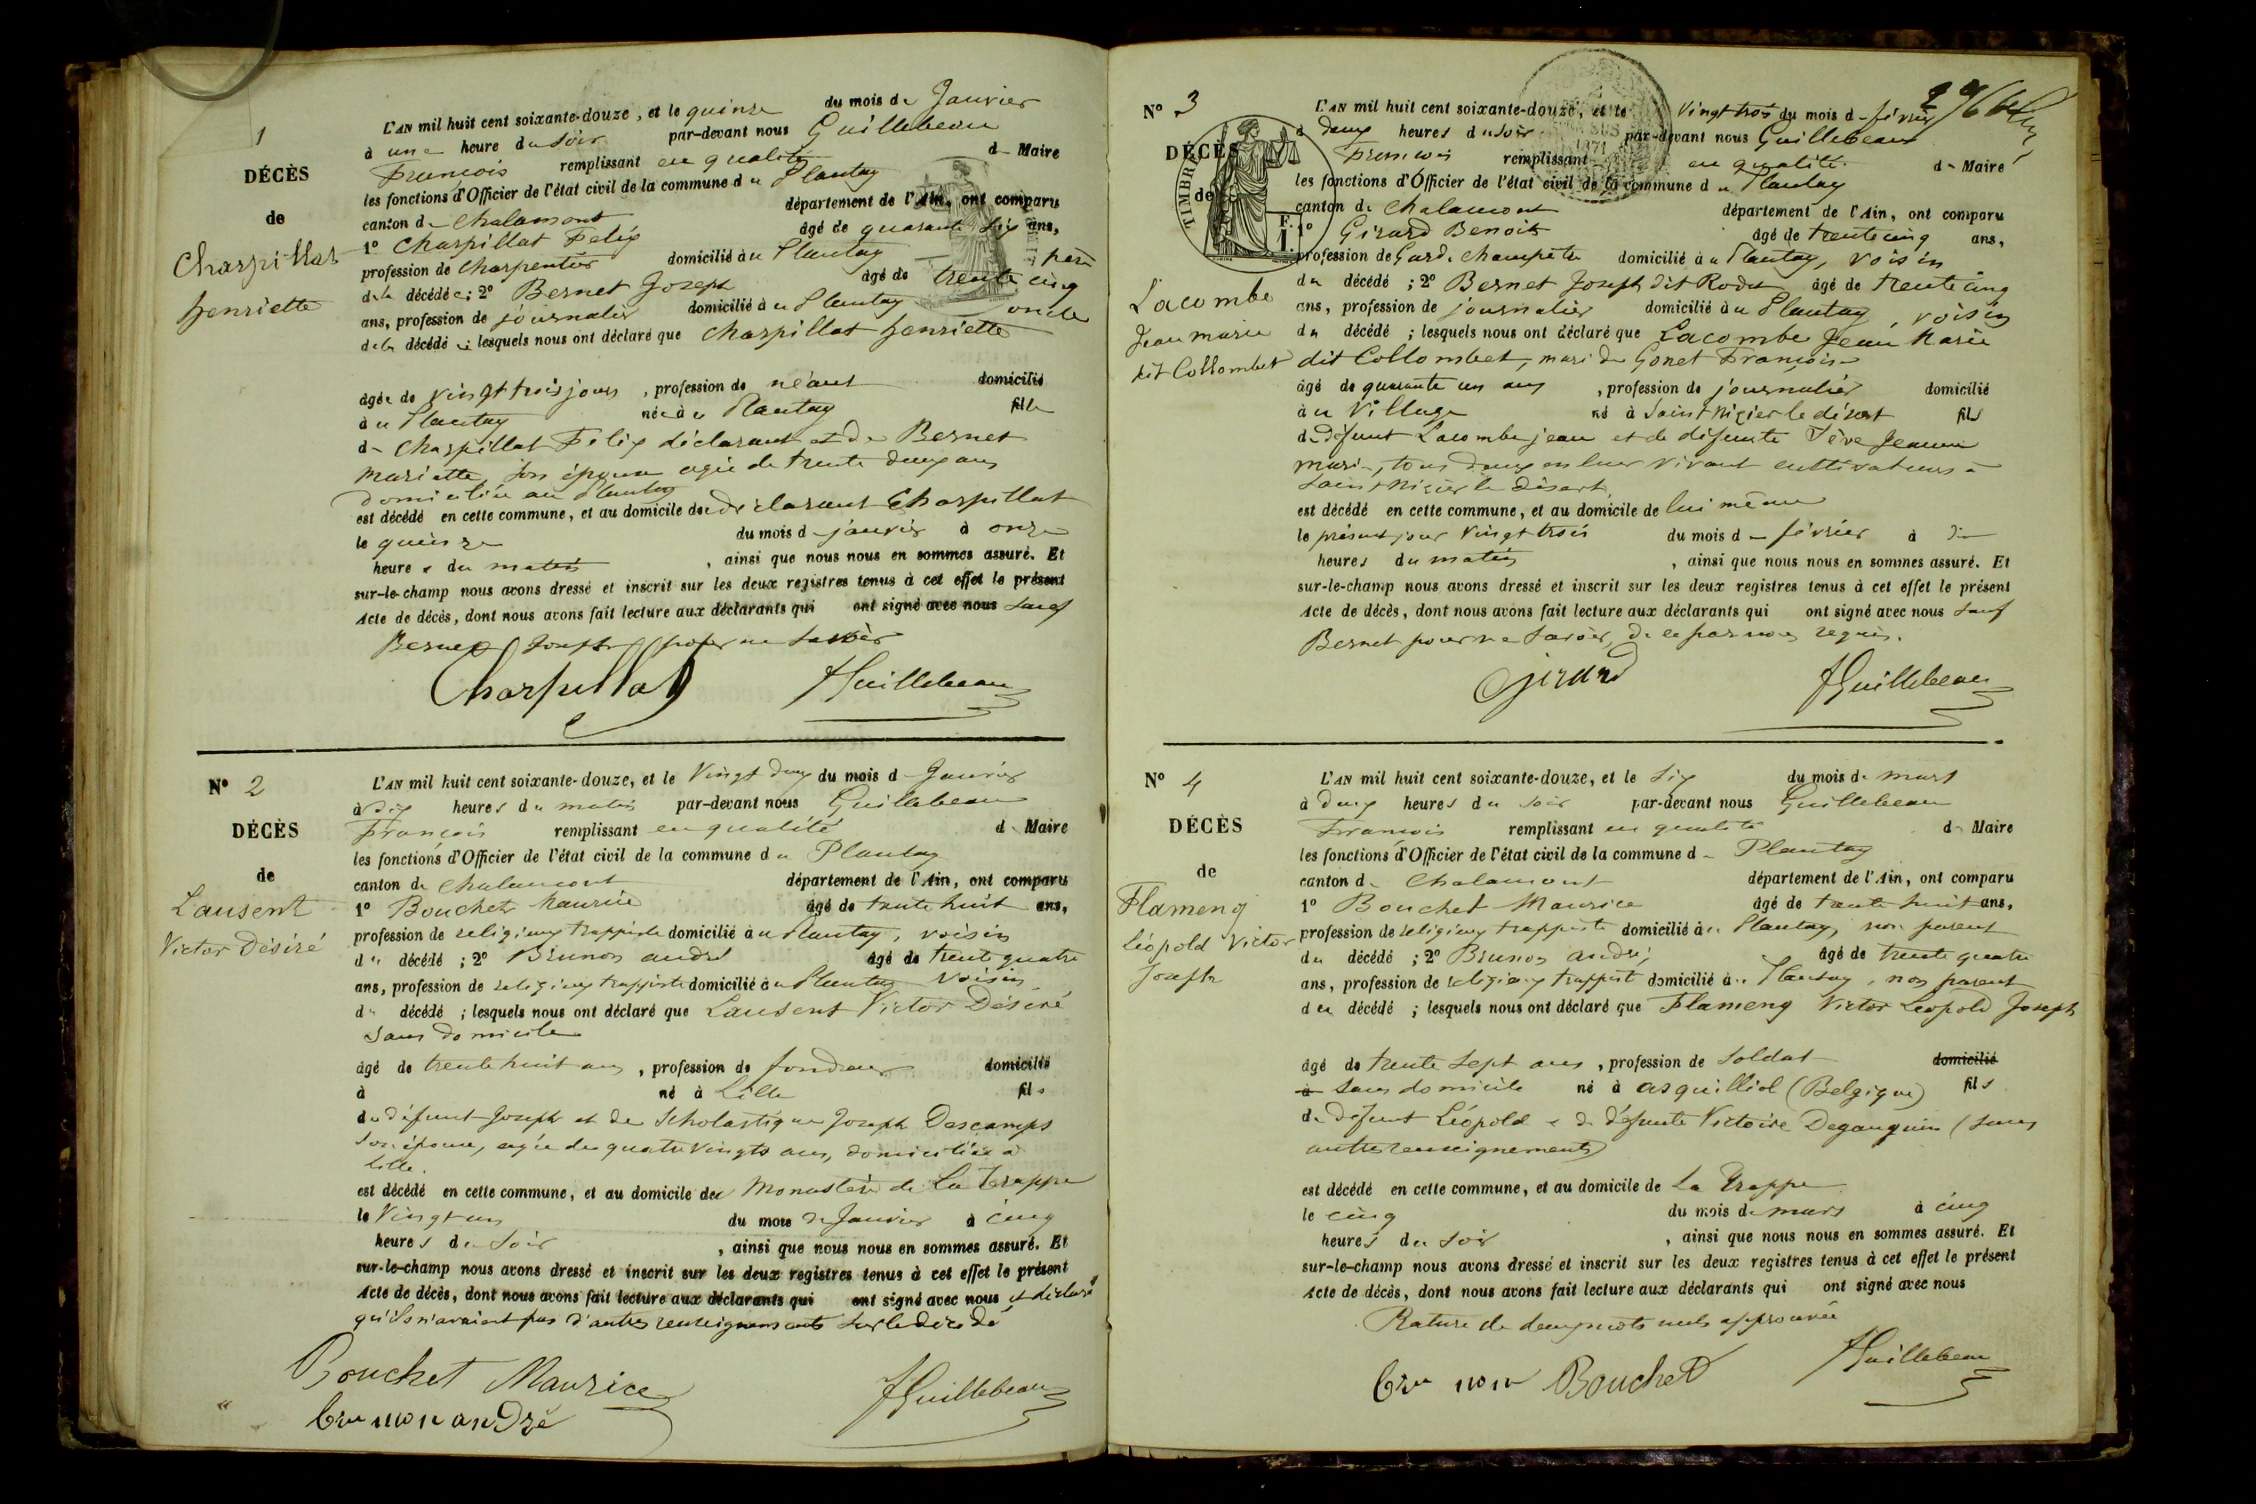 1
DÉCÈS
de
Charpillat
henriette
L'AN mil huit cent soixante-douze, et le quinze du mois de Janvier
à une heure du Soir par-devant nous Guillebeau
François remplissant en qualité de Maire
les fonctions d'Officier de l'état civil de la commune du Plantay
canton de Chalamont département de l'Ain, ont comparu
1º Charpillat Felix âgé de quarante six ans,
profession de charpentier domicilié au Plantay père
de la décédée; 2º Bernet Joseph âgé de trente cinq
ans, profession de journalier domicilié à au Plantay oncle
de la décédée; lesquels nous ont déclaré que Charpillat henriette
âgée de vingt trois jours, profession de néant domicilié
à au Plantay née à au Plantay fille
de Charpillat Félix déclarant et de Bernet
Mariette, son épouse agée de trente deux ans
domiciliée au Plantay
est décédé en cette commune, et au domicile du déclarant Charpillat
le quinze du mois de janvier à onze
heures du matin, ainsi que nous nous en sommes assuré. Et
sur-le-champ nous avons dressé et inscrit sur les deux registres tenus à cet effet le présent
Acte de décès, dont nous avons fait lecture aux déclarants qui ont signé avec nous sauf
Bernet Joseph pour ne savoir
Charpillat JGuillebeau
Nº 2
DÉCÈS
de
Lausent
Victor Désiré
L'AN mil huit cent soixante-douze, et le Vingt deux du mois de Janvier
à dix heures du matin par-devant nous Guillebeau
François remplissant en qualité de Maire
les fonctions d'Officier de l'état civil de la commune du Plantay
canton de Chalamont département de l'Ain, ont comparu
1º Bouchet Maurice âgé de trente huit ans,
profession de religieux trappiste domicilié à au Plantay, voisin
du décédé; 2º Brunon andré âgé de trente quatre
ans, profession de religieux trappiste domicilié à au Plantay voisin
du décédé; lesquels nous ont déclaré que Lausent Victor Désiré
Sans domicile
âgé de trente huit ans, profession de fondeur domicilié
à né à Lille fils
du défunt Joseph et de Scholastique Joseph Descamps
son épouse, agée de quatre vingts ans, domiciliée à
Lille.
est décédé en cette commune, et au domicile du Monastère de La Trappe
le Vingt un du mois de Janvier à cinq
heures du Soir, ainsi que nous nous en sommes assuré. Et
sur-le-champ nous avons dressé et inscrit sur les deux registres tenus à cet effet le présent
Acte de décès, dont nous avons fait lecture aux déclarants qui ont signé avec nous et déclaré
qu'ils n'avaient pas d'autres renseignements sur le décédé
Bouchet Maurice JGuillebeau
brunon andré
Nº 3
DÉCÈS
de
TIMBRE
Lacombe
Jean marie
dit Collombet
L'AN mil huit cent soixante-douze, et le Vingt trois du mois de février
à deux heures du soir par-devant nous Guillebeau
François remplissant en qualité de Maire
les fonctions d'Officier de l'état civil de la commune du Plantay
canton de Chalamont département de l'Ain, ont comparu
1º Girard Benoit âgé de trente cinq ans,
profession de Garde champêtre domicilié à au Plantay, voisin
du décédé; 2º Bernet Joseph dit Rodet âgé de trente cinq
ans, profession de journalier domicilié à au Plantay, voisin
du décédé; lesquels nous ont déclaré que Lacombe Jean Marie
dit Collombet, mari de Gonet Françoise
âgé de quarante un ans, profession de journalier domicilié
à au Village né à Saint Nizier le désert fils
de défunt Lacombe jean et de défunte Sève Jeanne
marie, tous deux en leur vivant cultivateurs à
Saint Nizier le Désert
est décédé en cette commune, et au domicile de lui même
le présent jour vingt trois du mois de février à dix
heures du matin, ainsi que nous nous en sommes assuré. Et
sur-le-champ nous avons dressé et inscrit sur les deux registres tenus à cet effet le présent
Acte de décès, dont nous avons fait lecture aux déclarants qui ont signé avec nous sauf
Bernet pour ne savoir, de ce par nous requis.
Girard JGuillebeau
Nº 4
DÉCÈS
de
Flameng
Léopold Victor
Joseph
L'AN mil huit cent soixante-douze, et le Six du mois de mars
à deux heures du soir par-devant nous Guillebeau
François remplissant en qualité de Maire
les fonctions d'Officier de l'état civil de la commune d Plantay
canton de Chalamont département de l'Ain, ont comparu
1º Bouchet Maurice âgé de trente huit ans,
profession de religieux trappiste domicilié à au Plantay, non parent
du décédé; 2º Brunon andré, âgé de trente quatre
ans, profession de religieux trappiste domicilié à au Plantay, non parent
du décédé; lesquels nous ont déclaré que Flameng Victor Léopold Joseph
âgé de trente sept ans, profession de Soldat domicilié
à Sans domicile né à asquilliol (Belgique) fils
de défunt Léopold et de défunte Victoire Deganquin (sans
autres renseignements)
est décédé en cette commune, et au domicile de La Trappe
le cinq du mois de mars à cinq
heures du soir, ainsi que nous nous en sommes assuré. Et
sur-le-champ nous avons dressé et inscrit sur les deux registres tenus à cet effet le présent
Acte de décès, dont nous avons fait lecture aux déclarants qui ont signé avec nous
Rature de deux mots nuls approuvée
brunon Bouchet JGuillebeau